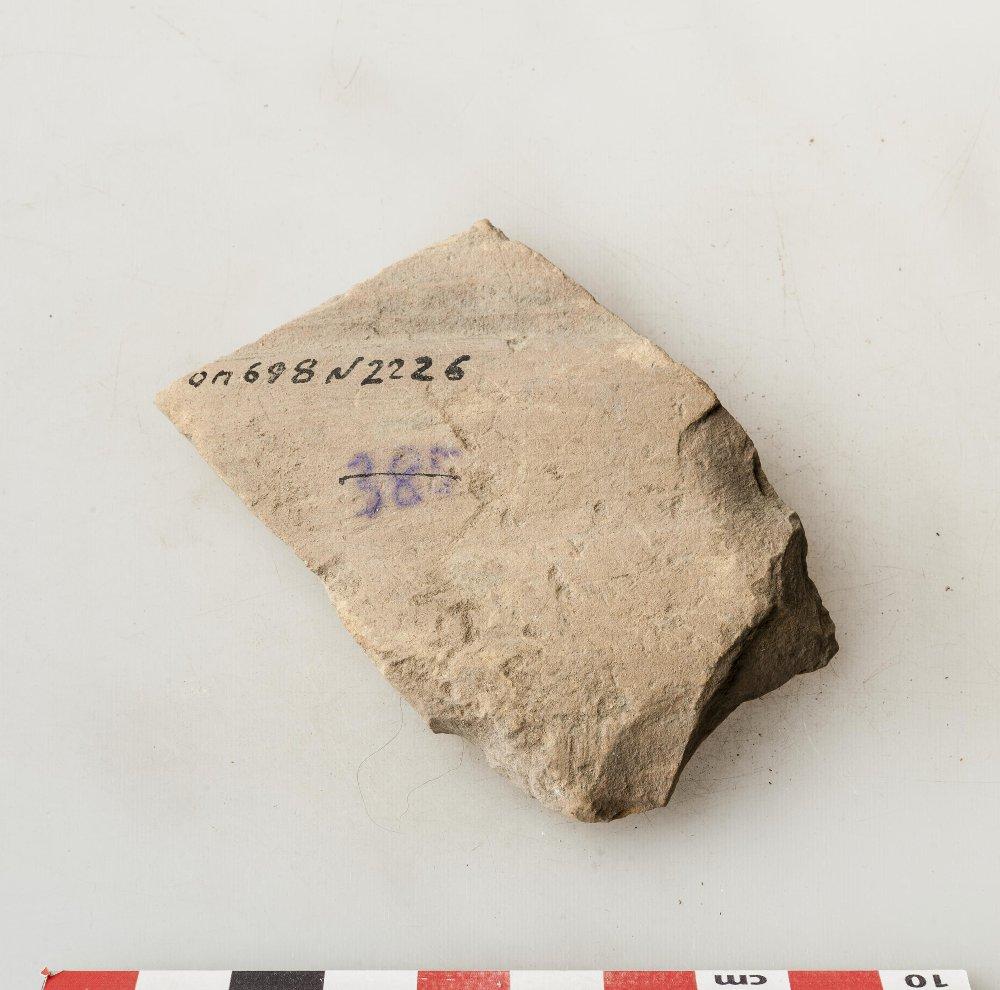 оп698 N2226
385
cm
10